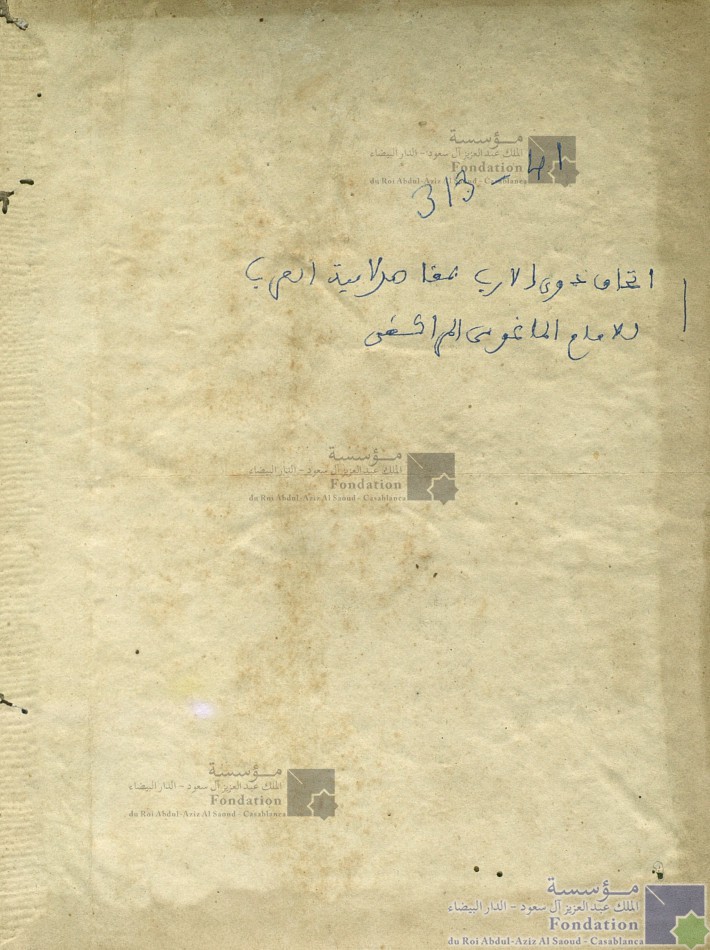 مؤسسة
الملك عبد العزيز آل سعود - الدار البيضاء
Fondation
du Roi Abdul-Aziz Al Saoud - Casablanca
313 - 41
اتحاف ذوي الارب بمقاصد لامية العرب
للامام الماغوسي المراكشي
مؤسسة
الملك عبد العزيز آل سعود - الدار البيضاء
Fondation
du Roi Abdul-Aziz Al Saoud - Casablanca
مؤسسة
الملك عبد العزيز آل سعود - الدار البيضاء
Fondation
du Roi Abdul-Aziz Al Saoud - Casablanca
مؤسسة
الملك عبد العزيز آل سعود - الدار البيضاء
Fondation
du Roi Abdul-Aziz Al Saoud - Casablanca